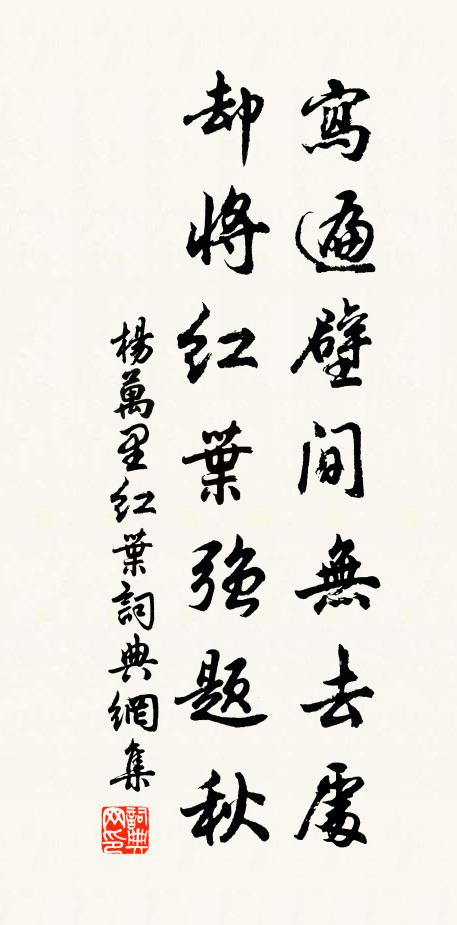 寫遍壁間無去處
却將紅葉強題秋
楊萬里紅葉詞典網集
詞典網印